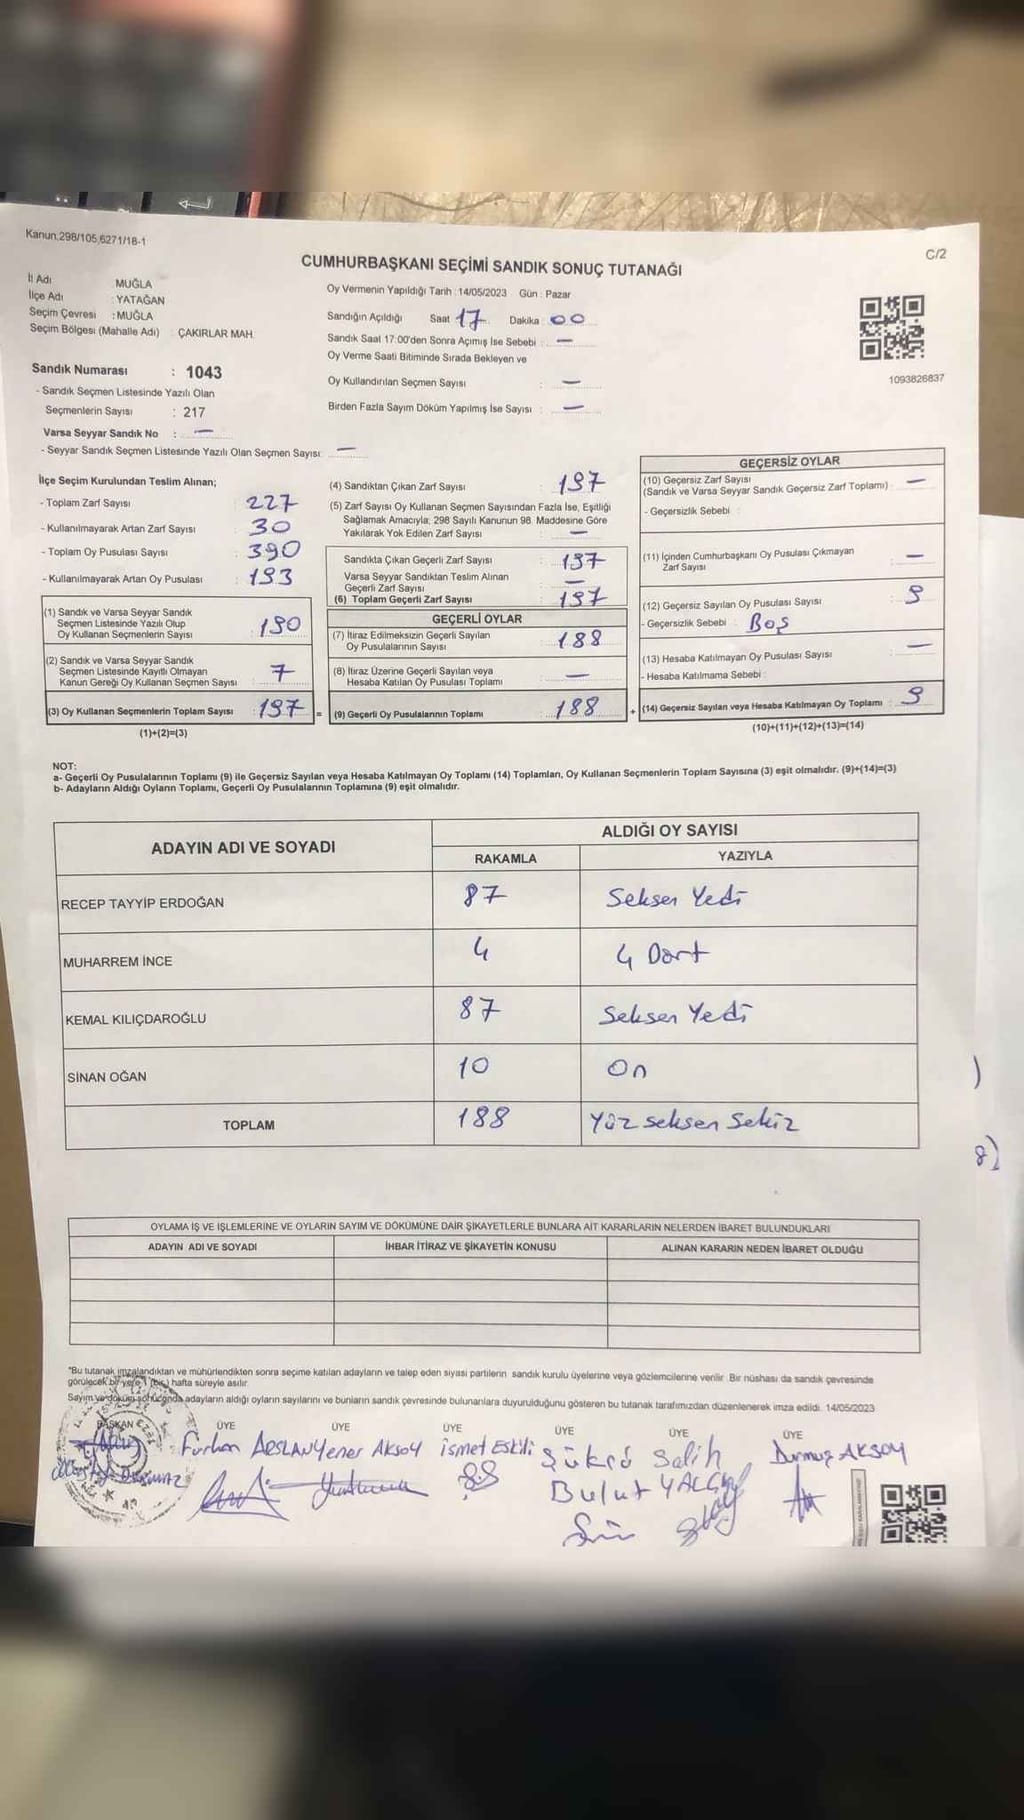 Kanun,298/105,6271/18-1
C/2
CUMHURBAŞKANI SEÇİMİ SANDIK SONUÇ TUTANAĞI
İl Adı MUĞLA
İlçe Adı : YATAĞAN
Seçim Çevresi : MUĞLA
Seçim Bölgesi (Mahalle Adı) : ÇAKIRLAR MAH.
Oy Vermenin Yapıldığı Tarih : 14/05/2023 Gün : Pazar
Sandığın Açıldığı Saat 17 Dakika : 00
Sandık Saat 17:00'den Sonra Açımış İse Sebebi : —
Oy Verme Saati Bitiminde Sırada Bekleyen ve
Oy Kullandırılan Seçmen Sayısı : —
Birden Fazla Sayım Döküm Yapılmış İse Sayısı : —
1093826837
Sandık Numarası : 1043
- Sandık Seçmen Listesinde Yazılı Olan
Seçmenlerin Sayısı : 217
Varsa Seyyar Sandık No : —
- Seyyar Sandık Seçmen Listesinde Yazılı Olan Seçmen Sayısı: —
İlçe Seçim Kurulundan Teslim Alınan;
- Toplam Zarf Sayısı : 227
- Kullanılmayarak Artan Zarf Sayısı : 30
- Toplam Oy Pusulası Sayısı : 390
- Kullanılmayarak Artan Oy Pusulası : 193
(1) Sandık ve Varsa Seyyar Sandık
Seçmen Listesinde Yazılı Olup
Oy Kullanan Seçmenlerin Sayısı : 190
(2) Sandık ve Varsa Seyyar Sandık
Seçmen Listesinde Kayıtlı Olmayan
Kanun Gereği Oy Kullanan Seçmen Sayısı : 7
(3) Oy Kullanan Seçmenlerin Toplam Sayısı : 197 =
(1)+(2)=(3)
(4) Sandıktan Çıkan Zarf Sayısı : 197
(5) Zarf Sayısı Oy Kullanan Seçmen Sayısından Fazla İse, Eşitliği
Sağlamak Amacıyla; 298 Sayılı Kanunun 98. Maddesine Göre
Yakılarak Yok Edilen Zarf Sayısı : —
Sandıkta Çıkan Geçerli Zarf Sayısı : 197
Varsa Seyyar Sandıktan Teslim Alınan
Geçerli Zarf Sayısı : —
(6) Toplam Geçerli Zarf Sayısı : 197
GEÇERLİ OYLAR
(7) İtiraz Edilmeksizin Geçerli Sayılan
Oy Pusulalarının Sayısı : 188
(8) İtiraz Üzerine Geçerli Sayılan veya
Hesaba Katılan Oy Pusulası Toplamı : —
(9) Geçerli Oy Pusulalarının Toplamı : 188 +
GEÇERSİZ OYLAR
(10) Geçersiz Zarf Sayısı
(Sandık ve Varsa Seyyar Sandık Geçersiz Zarf Toplamı) : —
- Geçersizlik Sebebi :
(11) İçinden Cumhurbaşkanı Oy Pusulası Çıkmayan
Zarf Sayısı : —
(12) Geçersiz Sayılan Oy Pusulası Sayısı : 9
- Geçersizlik Sebebi : Boş
(13) Hesaba Katılmayan Oy Pusulası Sayısı : —
- Hesaba Katılmama Sebebi :
(14) Geçersiz Sayılan veya Hesaba Katılmayan Oy Toplamı : 9
(10)+(11)+(12)+(13)=(14)
NOT:
a- Geçerli Oy Pusulalarının Toplamı (9) ile Geçersiz Sayılan veya Hesaba Katılmayan Oy Toplamı (14) Toplamları, Oy Kullanan Seçmenlerin Toplam Sayısına (3) eşit olmalıdır. (9)+(14)=(3)
b- Adayların Aldığı Oyların Toplamı, Geçerli Oy Pusulalarının Toplamına (9) eşit olmalıdır.
ADAYIN ADI VE SOYADI
ALDIĞI OY SAYISI
RAKAMLA YAZIYLA
RECEP TAYYİP ERDOĞAN 87 Seksen Yedi
MUHARREM İNCE 4 4 Dört
KEMAL KILIÇDAROĞLU 87 Seksen Yedi
SİNAN OĞAN 10 On
TOPLAM 188 Yüz seksen Sekiz
8)
OYLAMA İŞ VE İŞLEMLERİNE VE OYLARIN SAYIM VE DÖKÜMÜNE DAİR ŞİKAYETLERLE BUNLARA AİT KARARLARIN NELERDEN İBARET BULUNDUKLARI
ADAYIN ADI VE SOYADI İHBAR İTİRAZ VE ŞİKAYETİN KONUSU ALINAN KARARIN NEDEN İBARET OLDUĞU
"Bu tutanak imzalandıktan ve mühürlendikten sonra seçime katılan adayların ve talep eden siyasi partilerin sandık kurulu üyelerine veya gözlemcilerine verilir. Bir nüshası da sandık çevresinde
görülecek bir yere 1 (bir) hafta süreyle asılır.
Sayım ve döküm sonucunda adayların aldığı oyların sayılarını ve bunların sandık çevresinde bulunanlara duyurulduğunu gösteren bu tutanak tarafımızdan düzenlenerek imza edildi. 14/05/2023
BAŞKAN ÜYE ÜYE ÜYE ÜYE ÜYE ÜYE
Furhan ARSLAN Yener AKSOY İsmet Eskili Şükrü Salih Durmuş AKSOY
Bulut YALÇIN